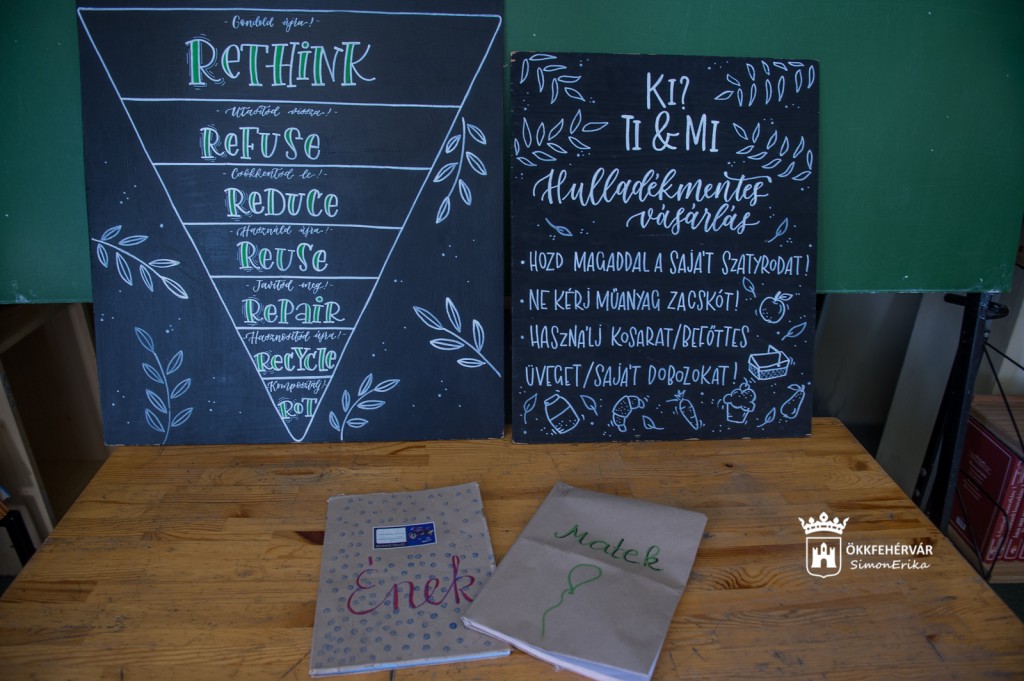 Gondold újra!
RETHINK
Utasítsd vissza!
REFUSE
Csökkentsd le!
REDUCE
Használd újra!
REUSE
Javítsd meg!
REPAIR
Hasznosítsd újra!
RECYCLE
Komposztálj!
ROT
KI?
TI & MI
Hulladékmentes
vásárlás
• HOZD MAGADDAL A SAJÁT SZATYRODAT!
• NE KÉRJ MŰANYAG ZACSKÓT!
• HASZNÁLJ KOSARAT/BEFŐTTES
ÜVEGET/SAJÁT DOBOZOKAT!
Ének
Matek
ÖKKFEHÉRVÁR
SimonErika